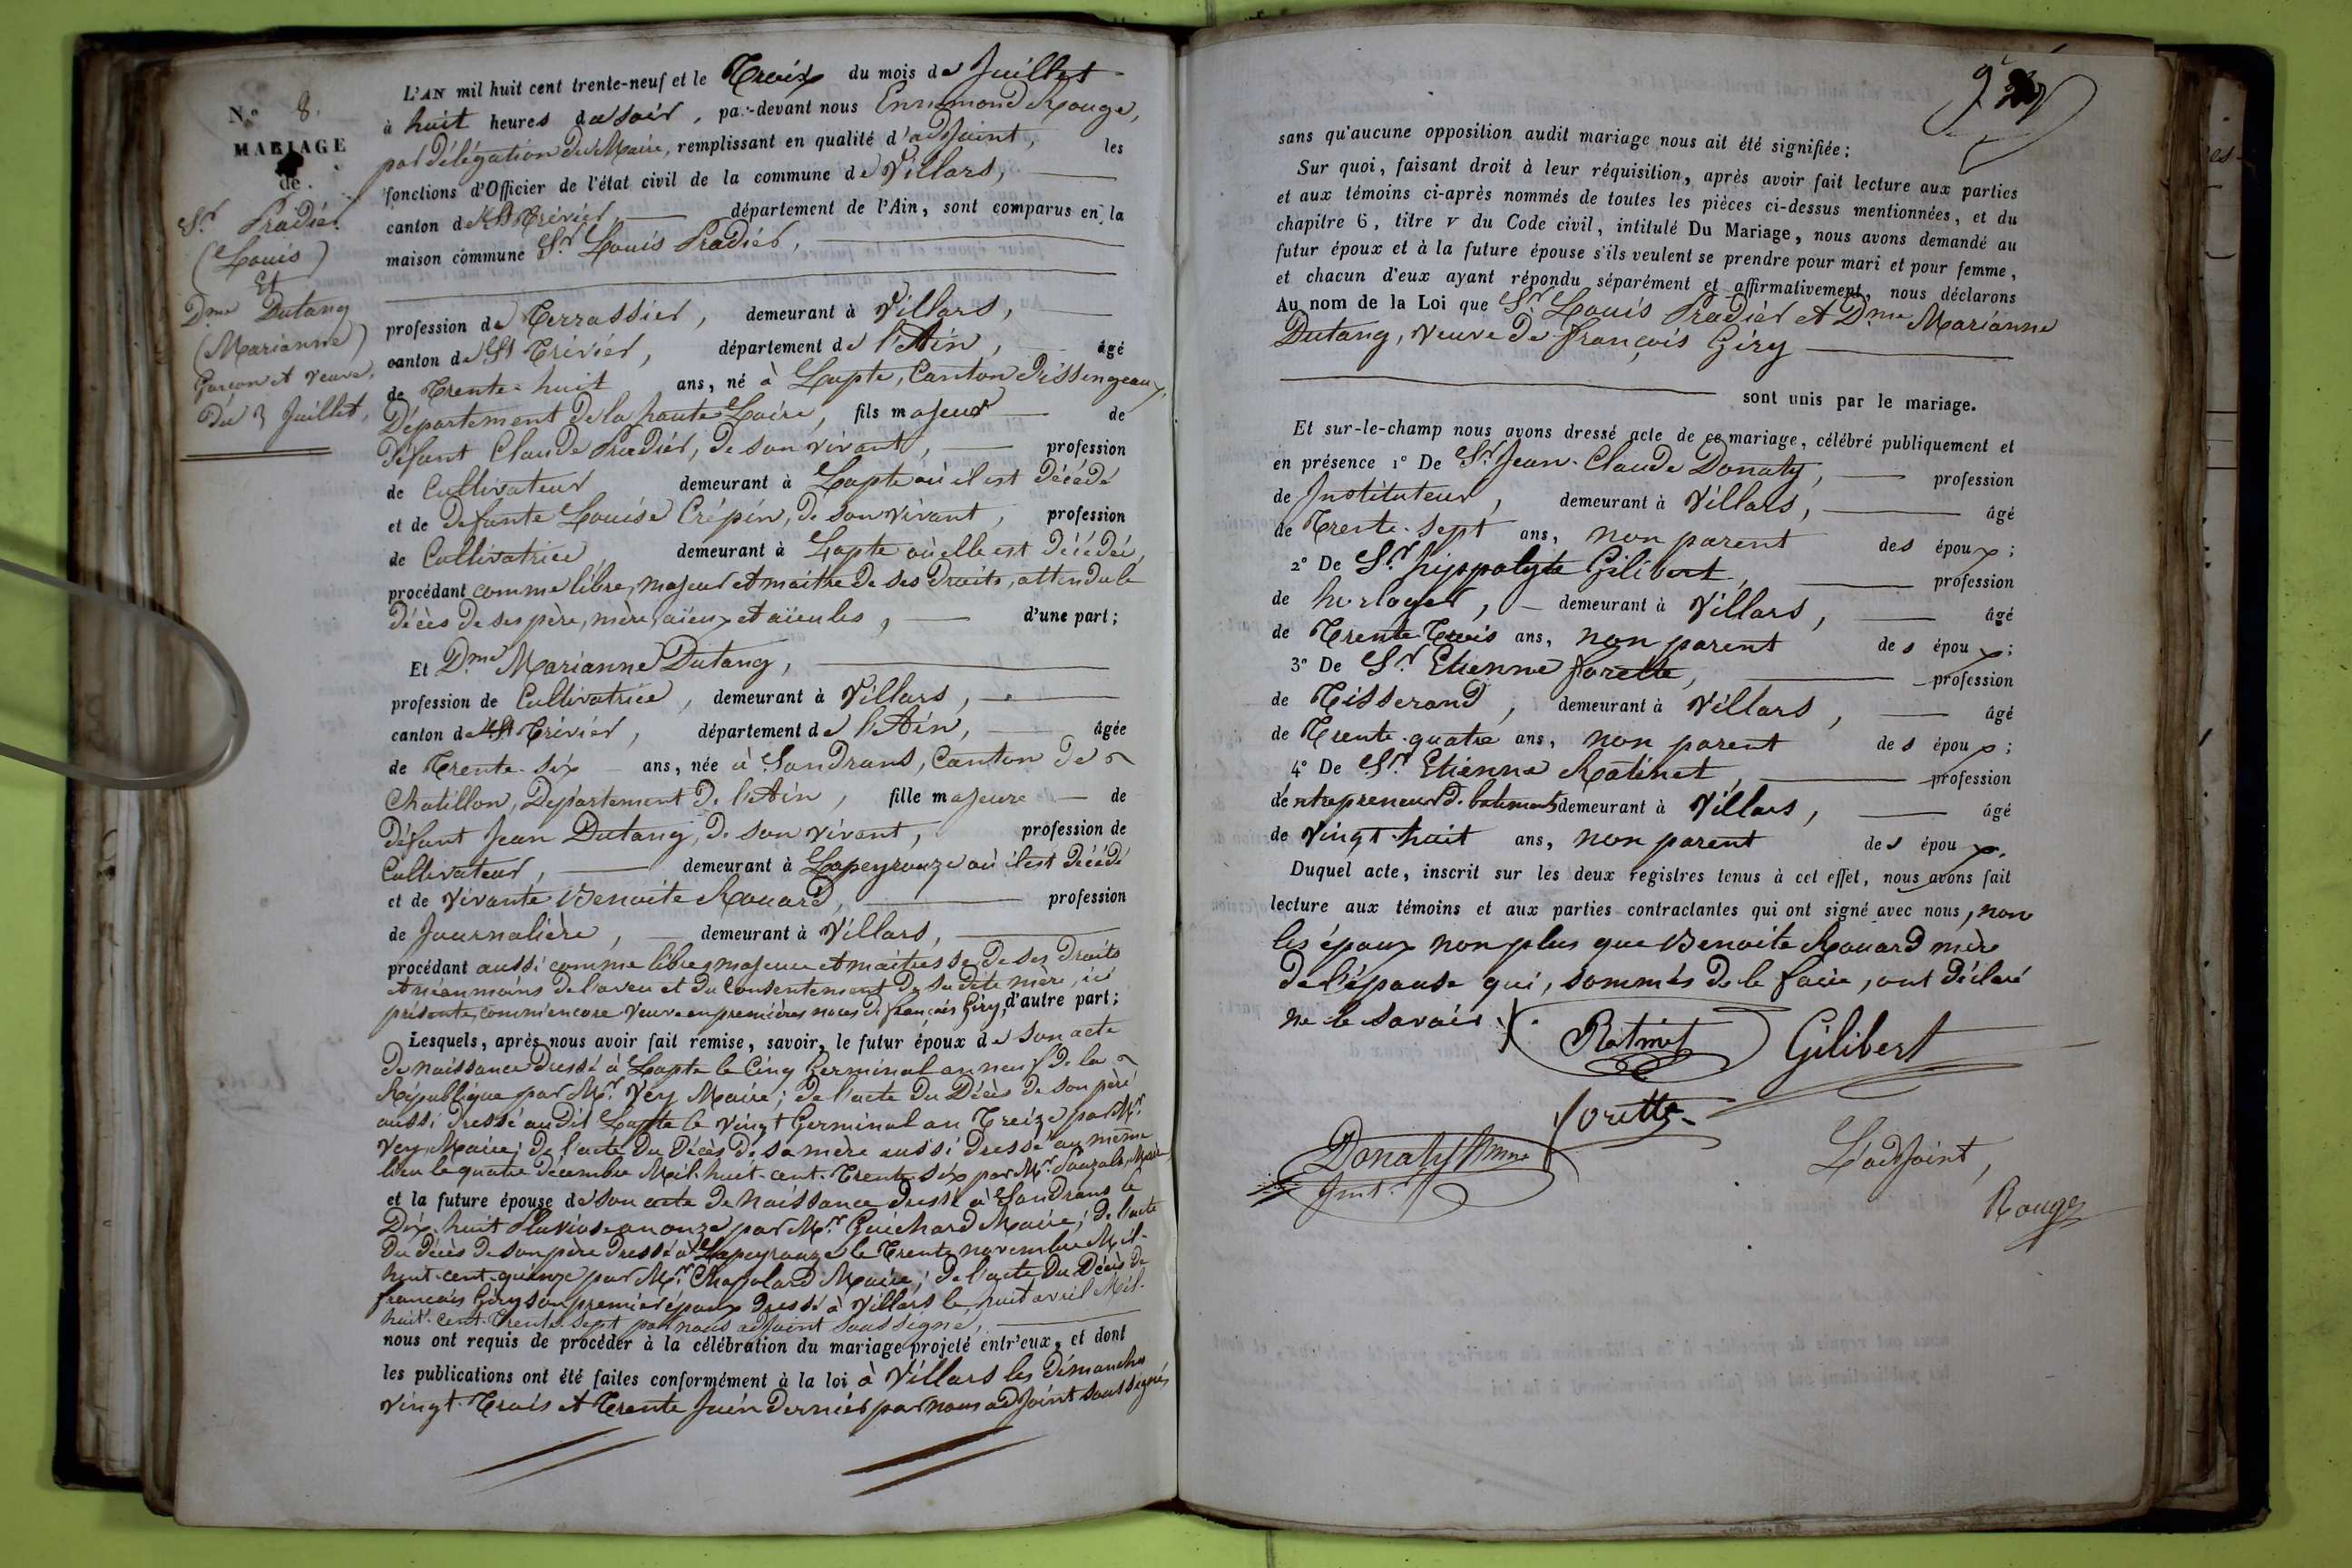 N.° 8.
MARIAGE
de
S.r Pradier
(Louis)
Et
D.me Dutang
(Marianne)
Garçon et veuve,
Du 3 Juillet,
L'AN mil huit cent trente-neuf et le Trois du mois de Juillet
à huit heures du soir, par-devant nous Ennemond Rouge,
par délégation du Maire, remplissant en qualité d'adjoint, les
fonctions d'Officier de l'état civil de la commune de Villars,
canton de St Trivier département de l'Ain, sont comparus en la
maison commune S.r Louis Pradier,
profession de Terrassier, demeurant à Villars,
canton de St Trivier, département de l'Ain, âgé
de Trente-huit ans, né à Lapte, Canton d'issengeaux,
Département de la haute Loire, fils majeur de
défunt Claude Pradier, de son vivant, profession
de Cultivateur demeurant à Lapte où il est décédé
et de defunte Louise Crépin, de son vivant, profession
de Cultivatrice, demeurant à Lapte où elle est décédée,
procédant comme libre, majeur et maitre de ses droits, attendu le
décès de ses père, mère, aïeux et aïeules, d'une part;
Et D.me Marianne Dutang,
profession de Cultivatrice, demeurant à Villars,
canton de St Trivier, département de l'Ain, âgée
de Trente-six ans, née à Sandrans, Canton de
Chatillon, Département de l'Ain, fille majeure de
défunt Jean Dutang, de son vivant, profession de
Cultivateur, demeurant à Lapeyrouze où il est décédé
et de vivante Benoite Rouard, profession
de Journalière, demeurant à Villars,
procédant aussi comme libre, majeure et maitresse de ses droits
et néanmoins de l'aveu et du Consentement de sa dite mère, ici
présente, comm'encore Veuve en premières noces de françois Giry, d'autre part;
Lesquels, après nous avoir fait remise, savoir, le futur époux de son acte
de naissance dressé à Lapte le Cinq Germinal an neuf de la
République par M.r Very Maire; de l'acte du Décès de son père
aussi dressé audit Lapte le vingt Germinal an Treize par M.r
Very Maire; de l'acte du Décès de sa mère aussi dressé au même
lieu le quatre décembre Mil-huit-cent-Trente-six par M.r Maire
et la future épouse de son acte de naissance dressé à Sandrans le
Dix-huit Pluviose an onze par M.r Guichard Maire; de l'acte
du décès de son père dressé à Lapeyrouze le Trente novembre Mil-
huit-cent-quinze par M.r Chapolard Maire; de l'acte du Décès de
françois Giry son premier époux dressé à Villars le huit avril Mil-
huit-cent-Trente-sept par nous adjoint soussigné,
nous ont requis de procéder à la célébration du mariage projeté entr'eux, et dont
les publications ont été faites conformément à la loi à Villars les dimanches
vingt-Trois et Trente Juin dernier par nous adjoint soussigné,
sans qu'aucune opposition audit mariage nous ait été signifiée:
Sur quoi, faisant droit à leur réquisition, après avoir fait lecture aux parties
et aux témoins ci-après nommés de toutes les pièces ci-dessus mentionnées, et du
chapitre 6, titre v du Code civil, intitulé Du Mariage, nous avons demandé au
futur époux et à la future épouse s'ils veulent se prendre pour mari et pour femme,
et chacun d'eux ayant répondu séparément et affirmativement, nous déclarons
Au nom de la Loi que S.r Louis Pradier et D.me Marianne
Dutang, veuve de françois Giry
sont unis par le mariage.
Et sur-le-champ nous avons dressé acte de ce mariage, célébré publiquement et
en présence 1° De S.r Jean-Claude Donaty, profession
de Instituteur, demeurant à Villars, âgé
de Trente-sept ans, non parent des époux;
2° De S.r hippolyte Gilibert, profession
de horloger, demeurant à Villars, âgé
de Trente-Trois ans, non parent des époux;
3° De S.r Etienne forette, profession
de Tisserand, demeurant à Villars, âgé
de Trente-quatre ans, non parent des époux;
4° De S.r Etienne Ratinet, profession
d'entrepreneur de batiments demeurant à Villars, âgé
de vingt-huit ans, non parent des époux.
Duquel acte, inscrit sur les deux registres tenus à cet effet, nous avons fait
lecture aux témoins et aux parties contractantes qui ont signé avec nous, non
les époux non plus que Benoite Rouard mère
de l'épouse qui, sommés de le faire, ont déclaré
ne le savoir.
Ratinet Gilibert
forette
Donaty
Inst.r
L'adjoint,
Rouge